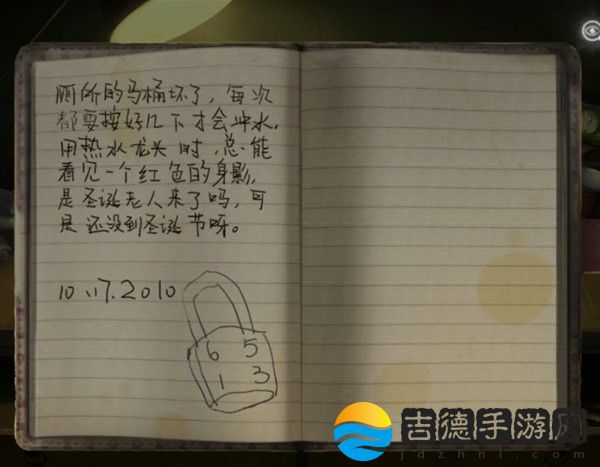 厕所的马桶坏了，每次
都要按好几下才会冲水，
用热水龙头时，总能
看见一个红色的身影，
是圣诞老人来了吗，可
是还没到圣诞节呀。
10.17.2010
6 5
1 3
吉德手游网
jdzhnl.com